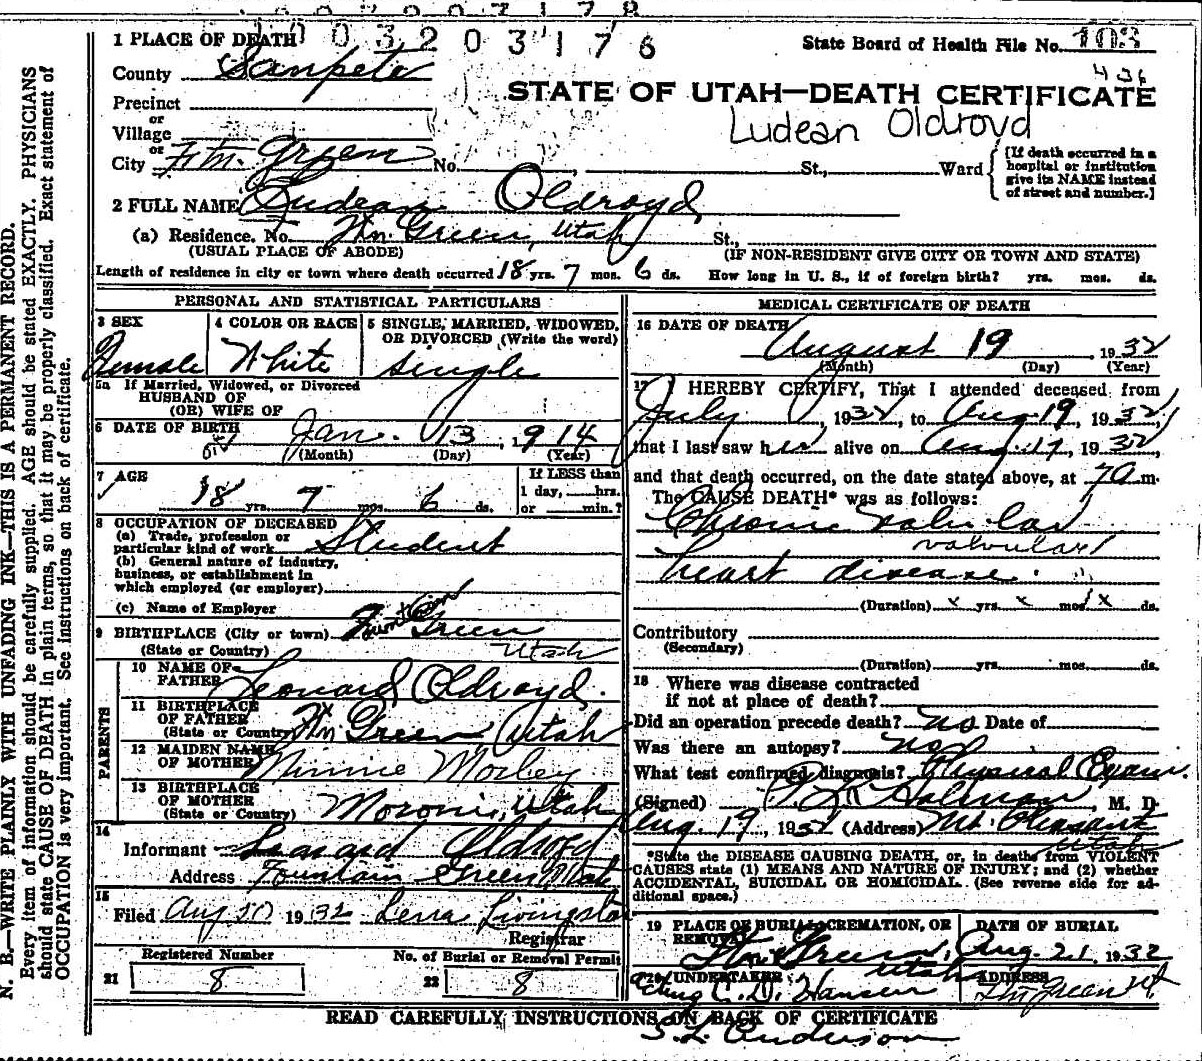 003203176
1 PLACE OF DEATH
State Board of Health File No. 103
County Sanpete
436
STATE OF UTAH—DEATH CERTIFICATE
Precinct
or
Village
Ludean Oldroyd
or
City Ftn. Green No. St., Ward
[If death occurred in a
hospital or institution
give its NAME instead
of street and number.]
2 FULL NAME Ludean Oldroyd
(a) Residence. No. Ftn. Green, Utah St.,
(USUAL PLACE OF ABODE) (IF NON-RESIDENT GIVE CITY OR TOWN AND STATE)
Length of residence in city or town where death occurred 18 yrs. 7 mos. 6 ds. How long in U. S., if of foreign birth? yrs. mos. ds.
PERSONAL AND STATISTICAL PARTICULARS
3 SEX
Female
4 COLOR OR RACE
White
5 SINGLE, MARRIED, WIDOWED,
OR DIVORCED (Write the word)
Single
5a If Married, Widowed, or Divorced
HUSBAND OF
(OR) WIFE OF
6 DATE OF BIRTH Jan. 13, 1914
(Month) (Day) (Year)
7 AGE
18 yrs. 7 mos. 6 ds.
If LESS than
1 day, hrs.
or min.?
8 OCCUPATION OF DECEASED
(a) Trade, profession or
particular kind of work Student
(b) General nature of industry,
business, or establishment in
which employed (or employer)
(c) Name of Employer
9 BIRTHPLACE (City or town) Fountain Green
(State or Country) Utah
PARENTS
10 NAME OF
FATHER Leonard Oldroyd.
11 BIRTHPLACE
OF FATHER
(State or Country) Ftn Green Utah
12 MAIDEN NAME
OF MOTHER Minnie Morley
13 BIRTHPLACE
OF MOTHER
(State or Country) Moroni, Utah
14
Informant Leonard Oldroyd
Address Fountain Green Utah
15
Filed Aug 20 1932 Lerra Livingston
Registrar
Registered Number
21 8
No. of Burial or Removal Permit
22 8
MEDICAL CERTIFICATE OF DEATH
16 DATE OF DEATH
August 19, 1932
(Month) (Day) (Year)
17 I HEREBY CERTIFY, That I attended deceased from
July, 1932, to Aug 19, 1932,
that I last saw her alive on Aug. 17, 1932,
and that death occurred, on the date stated above, at 7 a m.
The CAUSE DEATH* was as follows:
Chronic valvular
valvular
heart disease.
(Duration) x yrs. x mos. x ds.
Contributory
(Secondary)
(Duration) yrs. mos. ds.
18 Where was disease contracted
if not at place of death?
Did an operation precede death? no Date of
Was there an autopsy? no
What test confirmed diagnosis? Physical Exam.
(Signed) P. M. Holman, M. D.
Aug 19, 1932 (Address) Mt. Pleasant
Utah
*State the DISEASE CAUSING DEATH, or, in deaths from VIOLENT
CAUSES state (1) MEANS AND NATURE OF INJURY; and (2) whether
ACCIDENTAL, SUICIDAL OR HOMICIDAL. (See reverse side for ad-
ditional space.)
19 PLACE OF BURIAL, CREMATION, OR
REMOVAL
Ftn. Green,
Utah
DATE OF BURIAL
Aug. 21, 1932
20 UNDERTAKER
Acting C. D. Hansen
ADDRESS
Ftn Green Ut.
READ CAREFULLY INSTRUCTIONS ON BACK OF CERTIFICATE
S. L. Anderson
N. B.—WRITE PLAINLY WITH UNFADING INK—THIS IS A PERMANENT RECORD.
Every item of information should be carefully supplied. AGE should be stated EXACTLY. PHYSICIANS
should state CAUSE OF DEATH in plain terms, so that it may be properly classified. Exact statement of
OCCUPATION is very important. See instructions on back of certificate.